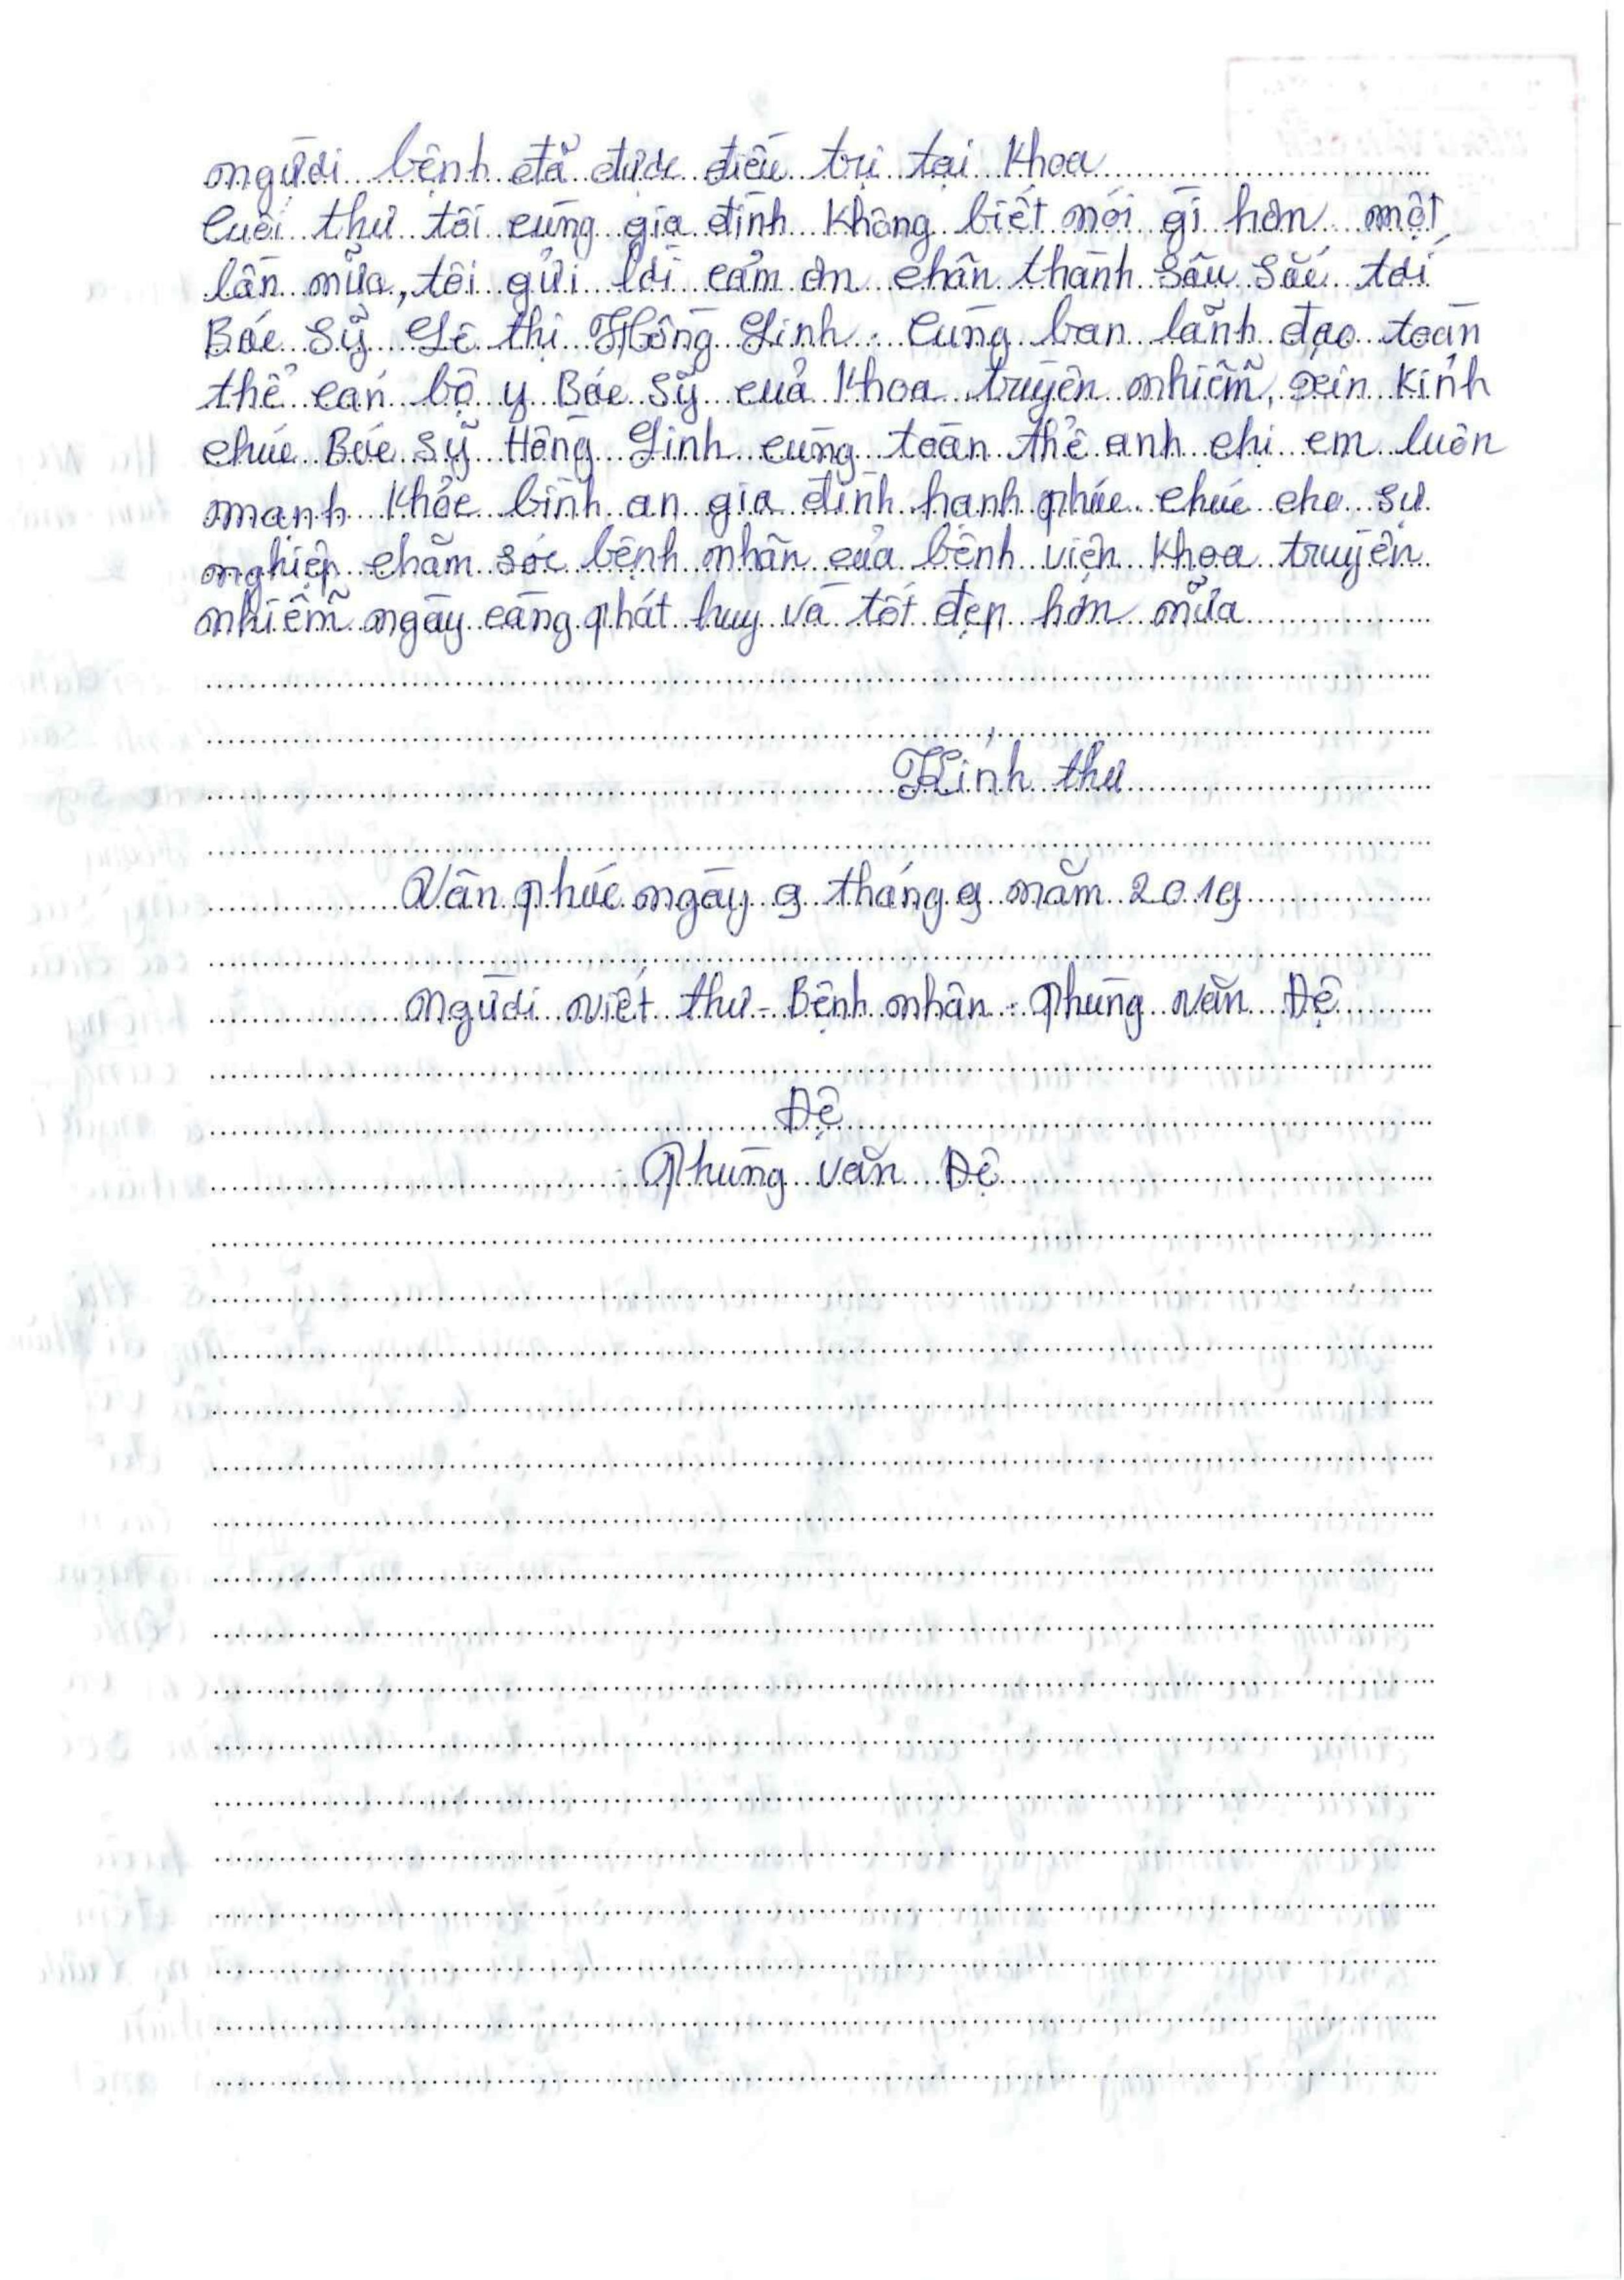 người bệnh đã được điều trị tại khoa
Cuối thư tôi cùng gia đình không biết nói gì hơn một
lần nữa, tôi gửi lời cảm ơn chân thành sâu sắc tới
Bác sỹ Lê thị Hồng Linh. Cùng ban lãnh đạo toàn
thể cán bộ y Bác sỹ của khoa truyền nhiễm, xin kính
chúc Bác sỹ Hồng Linh cùng toàn thể anh chị em luôn
mạnh khỏe bình an gia đình hạnh phúc chúc cho sự
nghiệp chăm sóc bệnh nhân của bệnh viện khoa truyền
nhiễm ngày càng phát huy và tốt đẹp hơn nữa
Kính thư
Vân phúc ngày 9 tháng 9 năm 2019
Người viết thư - Bệnh nhân: Phùng văn Đệ
Đệ
Phùng văn Đệ